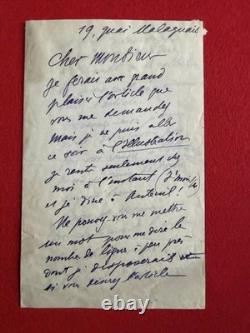 19, quai Malaquais
Cher Monsieur
Je ferais avec grand
plaisir l'article que
vous me demandez
Mais je ne puis aller
ce soir à l'Illustration
Je rentre seulement chez
moi à l'instant
et je dîne à Auteuil!
Ne pouvez vous me mettre
un mot pour me dire le
nombre de lignes à peu près
dont je disposerais et
si vous l'article